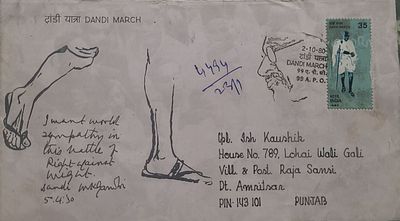 दांडी यात्रा DANDI MARCH
I want world
sympathy in
this battle of
Right against
might.
Dandi MKGandhi
5.4.30
2-10-80
दांडी यात्रा
DANDI MARCH
99 ए. पी. ओ.
99 A.P.O.
35
DANDI MARCH
भारत
INDIA
Cpl. Ish Kaushik
House No. 789, Lohai Wali Gali
Vill & Post. Raja Sansi
Dt. Amritsar
PIN-143 101 PUNJAB